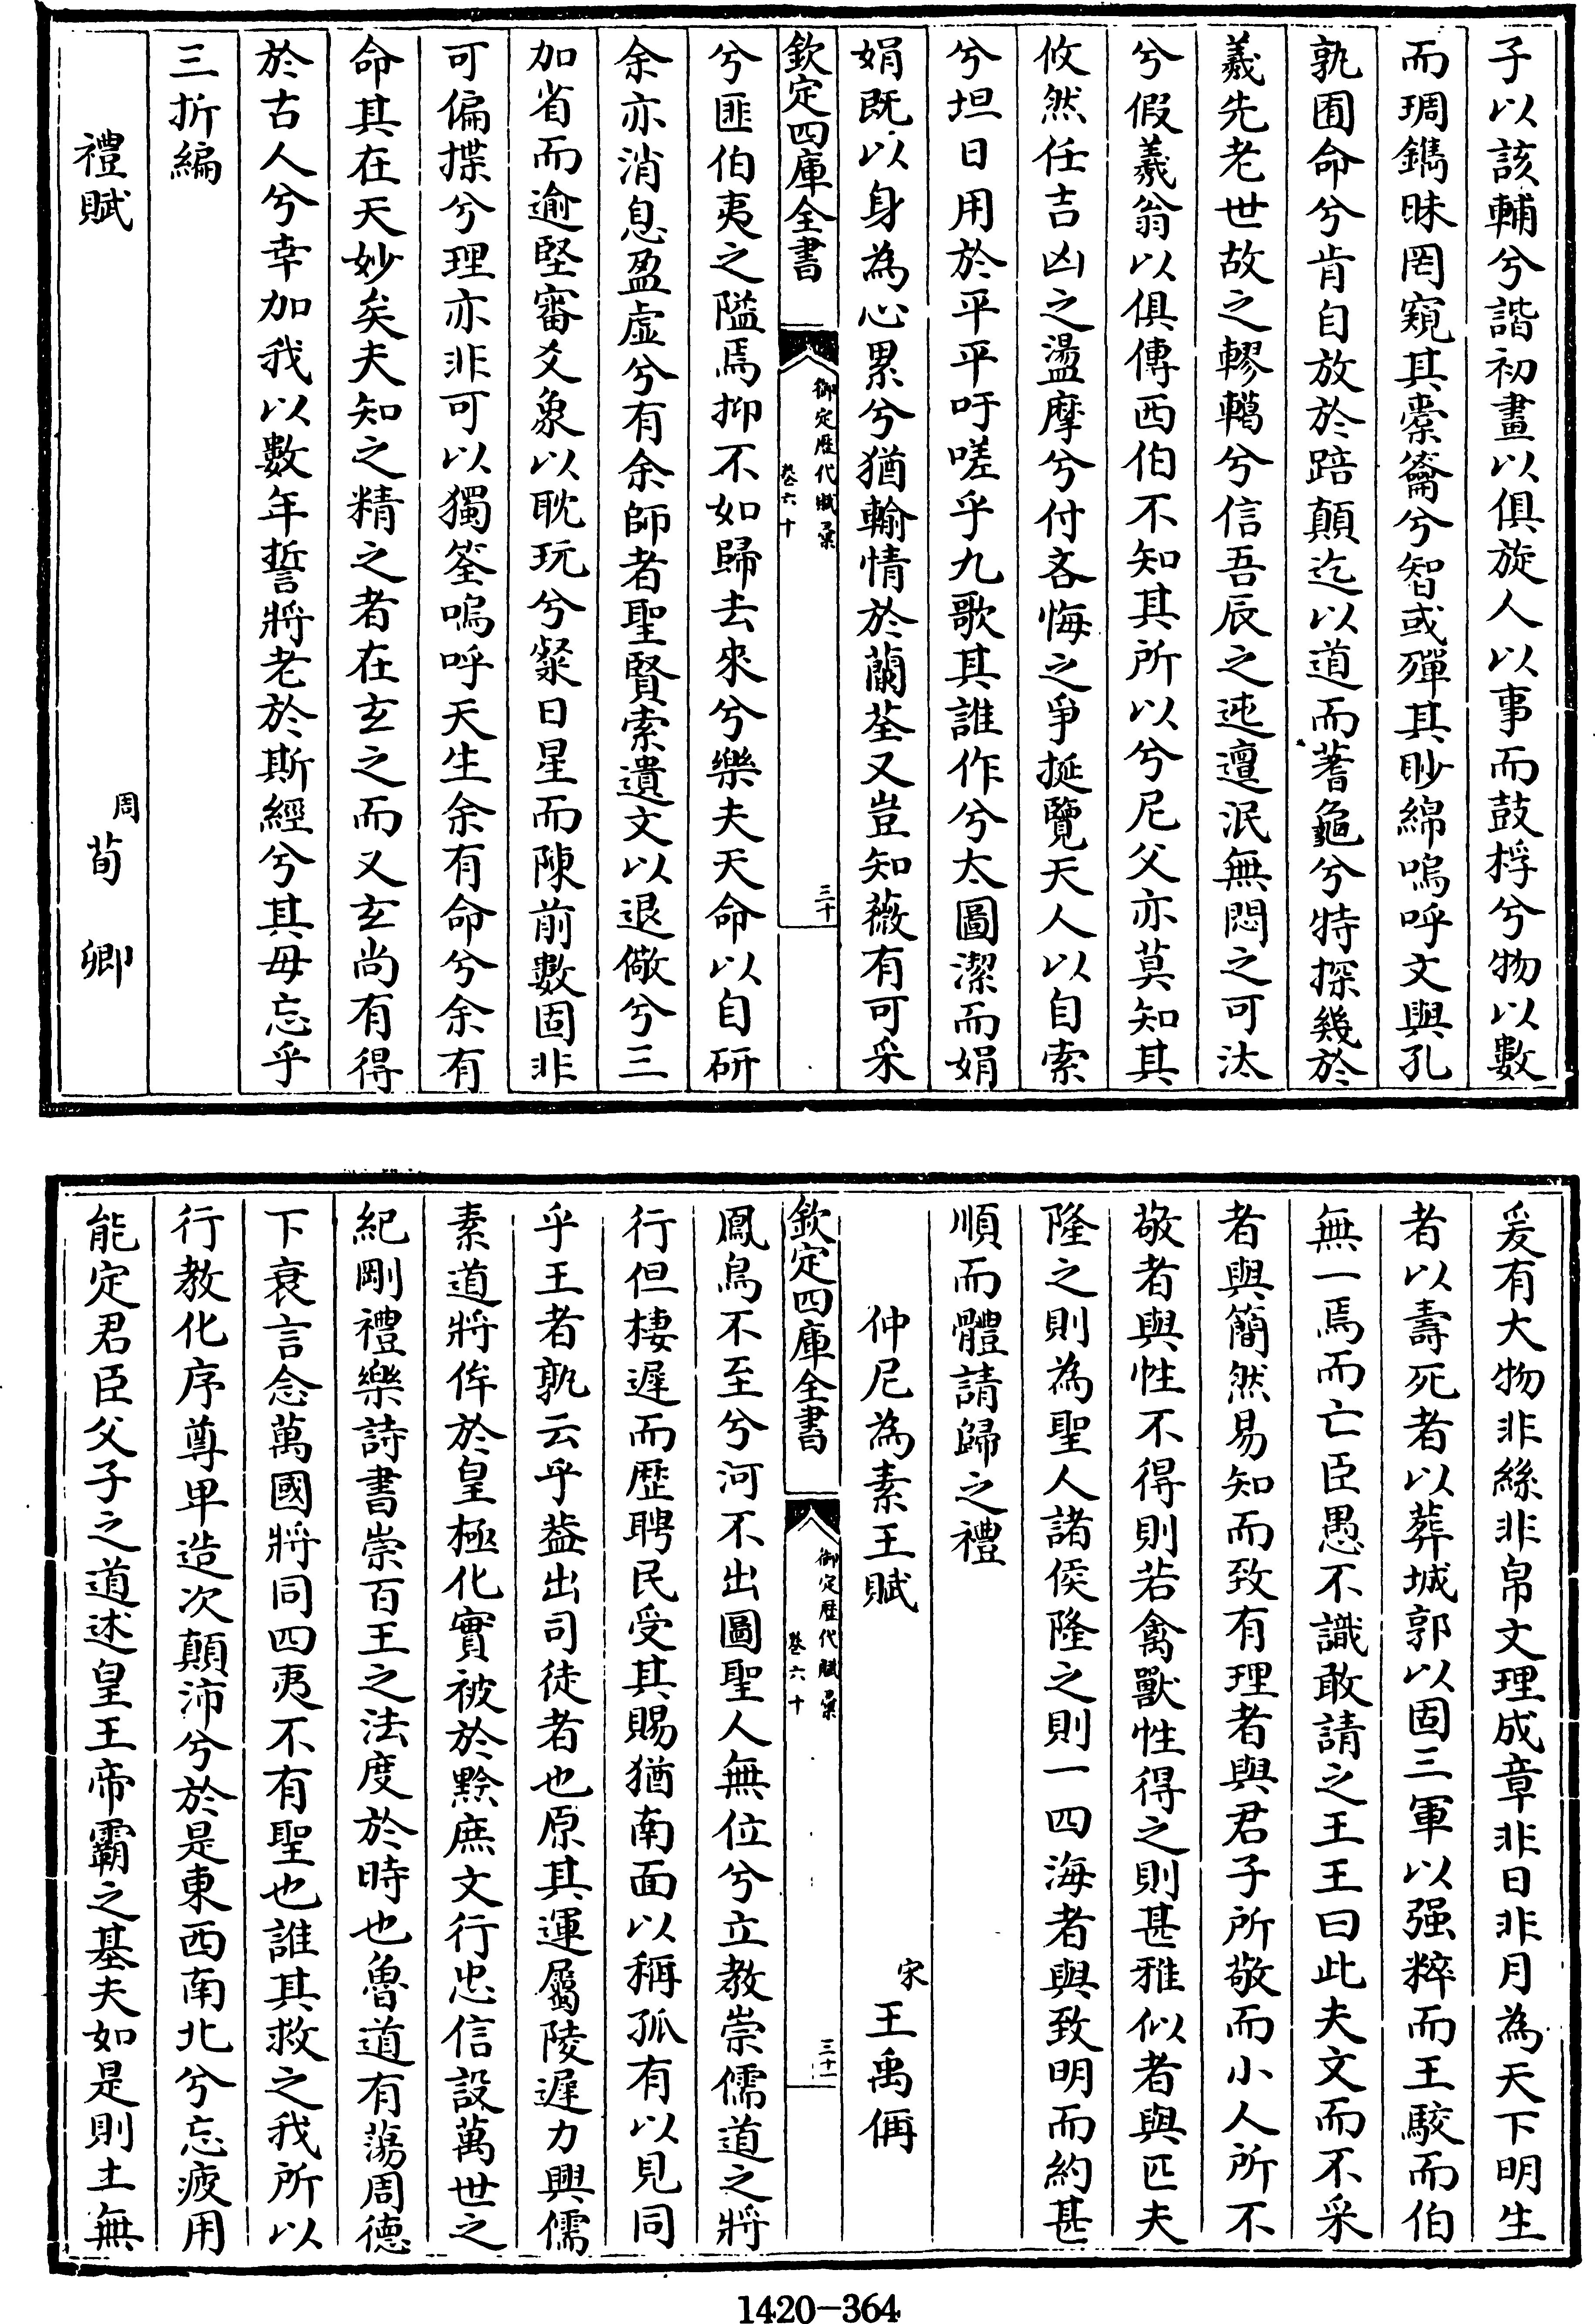 子以該輔兮諧初畫以俱旋人以事而鼓桴兮物以數
而琱鐫昧罔窺其橐籥兮智或殫其眇綿嗚呼文與孔
孰囿命兮肯自放於踣顛迄以道而蓍龜兮特探幾於
羲先老世故之轇轕兮信吾辰之迍邅泯無悶之可汰
兮假羲翁以俱傳西伯不知其所以兮尼父亦莫知其
攸然任吉凶之盪摩兮付吝悔之爭挻覽天人以自索
兮坦日用於平平吁嗟乎九歌其誰作兮太圖潔而娟
娟既以身為心累兮猶輸情於蘭荃又豈知薇有可采
欽定四庫全書
御定歴代賦彙
卷六十
三十
兮匪伯夷之隘焉抑不如歸去來兮樂夫天命以自研
余亦消息盈虛兮有余師者聖賢索遺文以退儆兮三
加省而逾堅審爻象以耽玩兮粲日星而陳前數固非
可偏揲兮理亦非可以獨筌嗚呼天生余有命兮余有
命其在天妙矣夫知之精之者在玄之而又玄尚有得
於古人兮幸加我以數年誓將老於斯經兮其毋忘乎
三折編
禮賦
周
荀卿
爰有大物非絲非帛文理成章非日非月為天下明生
者以壽死者以葬城郭以固三軍以强粹而王駮而伯
無一焉而亡臣愚不識敢請之王王曰此夫文而不采
者與簡然易知而致有理者與君子所敬而小人所不
敬者與性不得則若禽獸性得之則甚雅似者與匹夫
隆之則為聖人諸侯隆之則一四海者與致明而約甚
順而體請歸之禮
仲尼為素王賦
宋
王禹偁
欽定四庫全書
御定歴代賦彙
卷六十
三十一
鳳鳥不至兮河不出圖聖人無位兮立教崇儒道之將
行但棲遲而歴聘民受其賜猶南面以稱孤有以見同
乎王者孰云乎益出司徒者也原其運屬陵遲力興儒
素道將侔於皇極化實被於黔庶文行忠信設萬世之
紀剛禮樂詩書崇百王之法度於時也魯道有蕩周德
下衰言念萬國將同四夷不有聖也誰其救之我所以
行教化序尊卑造次顛沛兮於是東西南北兮忘疲用
能定君臣父子之道述皇王帝霸之基夫如是則土無
1420-364